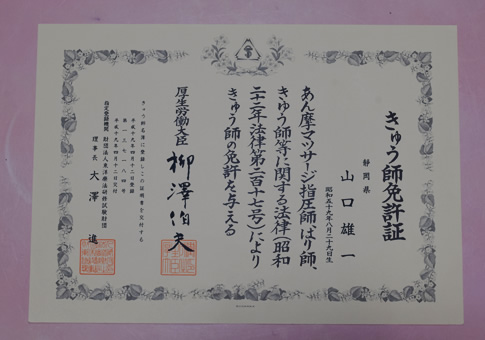 きゅう師免許証
静岡県
山口雄一
昭和五十九年八月二十九日生
あん摩マツサージ指圧師、はり師、
きゆう師等に関する法律(昭和
二十二年法律第二百十七号)により
きゆう師の免許を与える
厚生労働大臣 柳澤伯夫
きゆう師名簿に登録しこの証明書を交付する
平成十九年四月十二日登録
平成十九年四月十二日交付
指定登録機関 財団法人東洋療法研修試験財団
理事長 大澤進